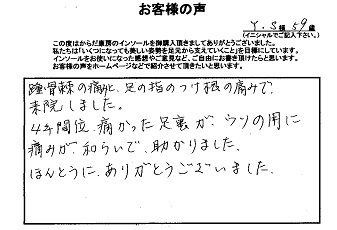 お客様の声
Y.S様 59歳
(イニシャルでご記入下さい。)
この度はからだ康房のインソールを御購入頂きましてありがとうございました。
私たちは「いくつになっても美しい姿勢を足元から支えていくこと」を目標にしています。
インソールをお使いになった感想やご意見など、ご自由にお書き下さい。
お客様の声をホームページなどで紹介させて頂きたいと思います。
踵骨棘の痛みと足の指のつけ根の痛みで、
来院しました。
4年間位、痛かった足裏が、ウソの用に
痛みが、和らいで、助かりました。
ほんとうに、ありがとうございました。